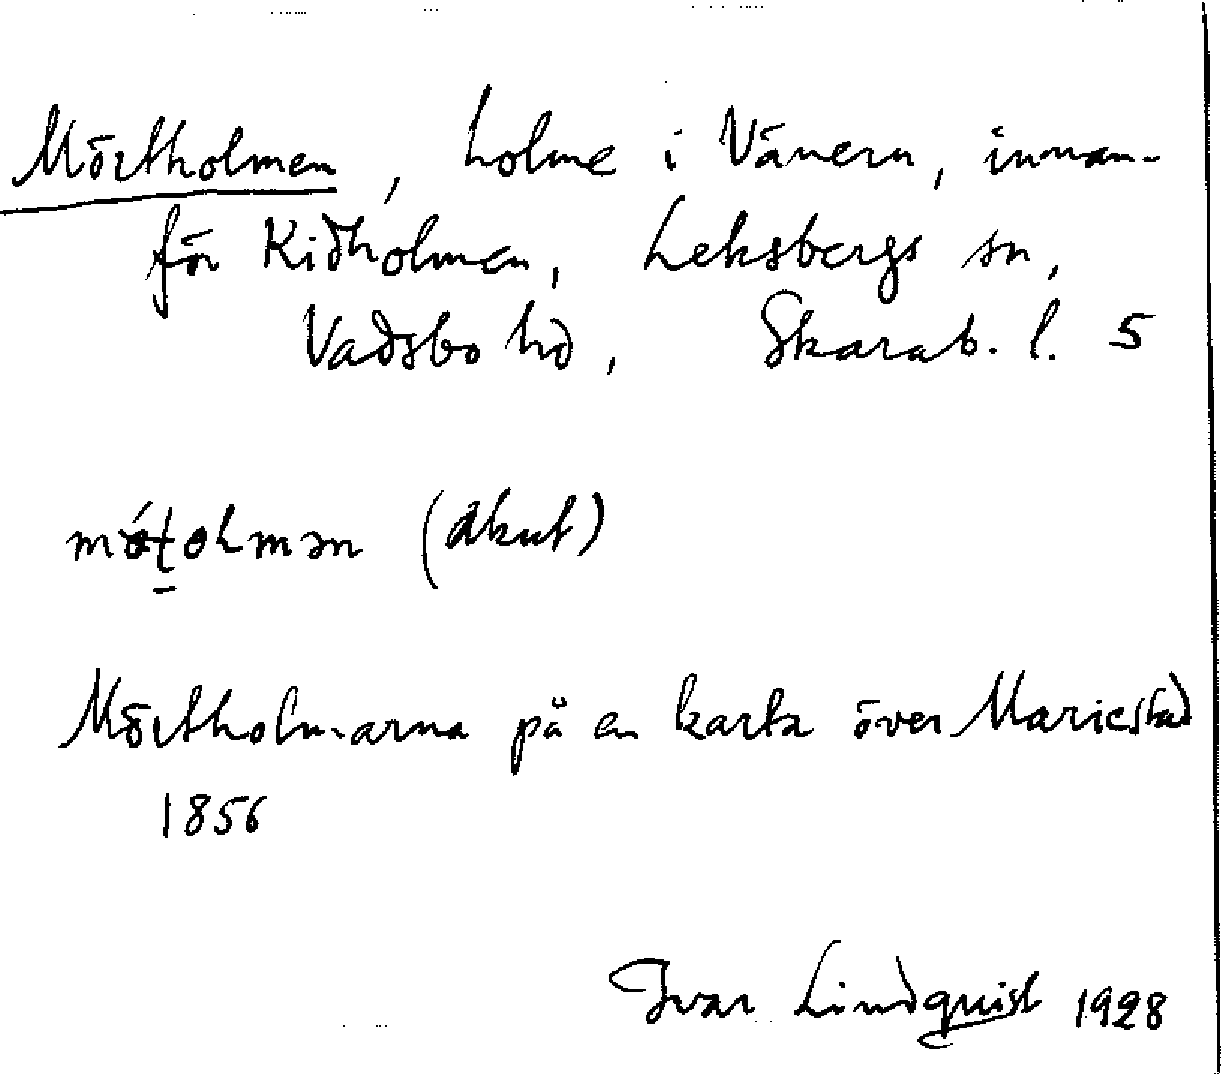 Mörtholmen, holme i Vänern, innan-
för Kidholmen, Leksbergs sn,
Vadsbo hd, Skarab. l. 5
(akut)
Mörtholmarna på en karta över Mariestad
1856
Ivar Lindquist 1928